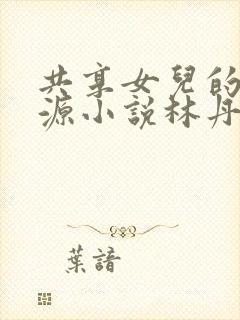 共享女兒的
源小說林丹
葉諳